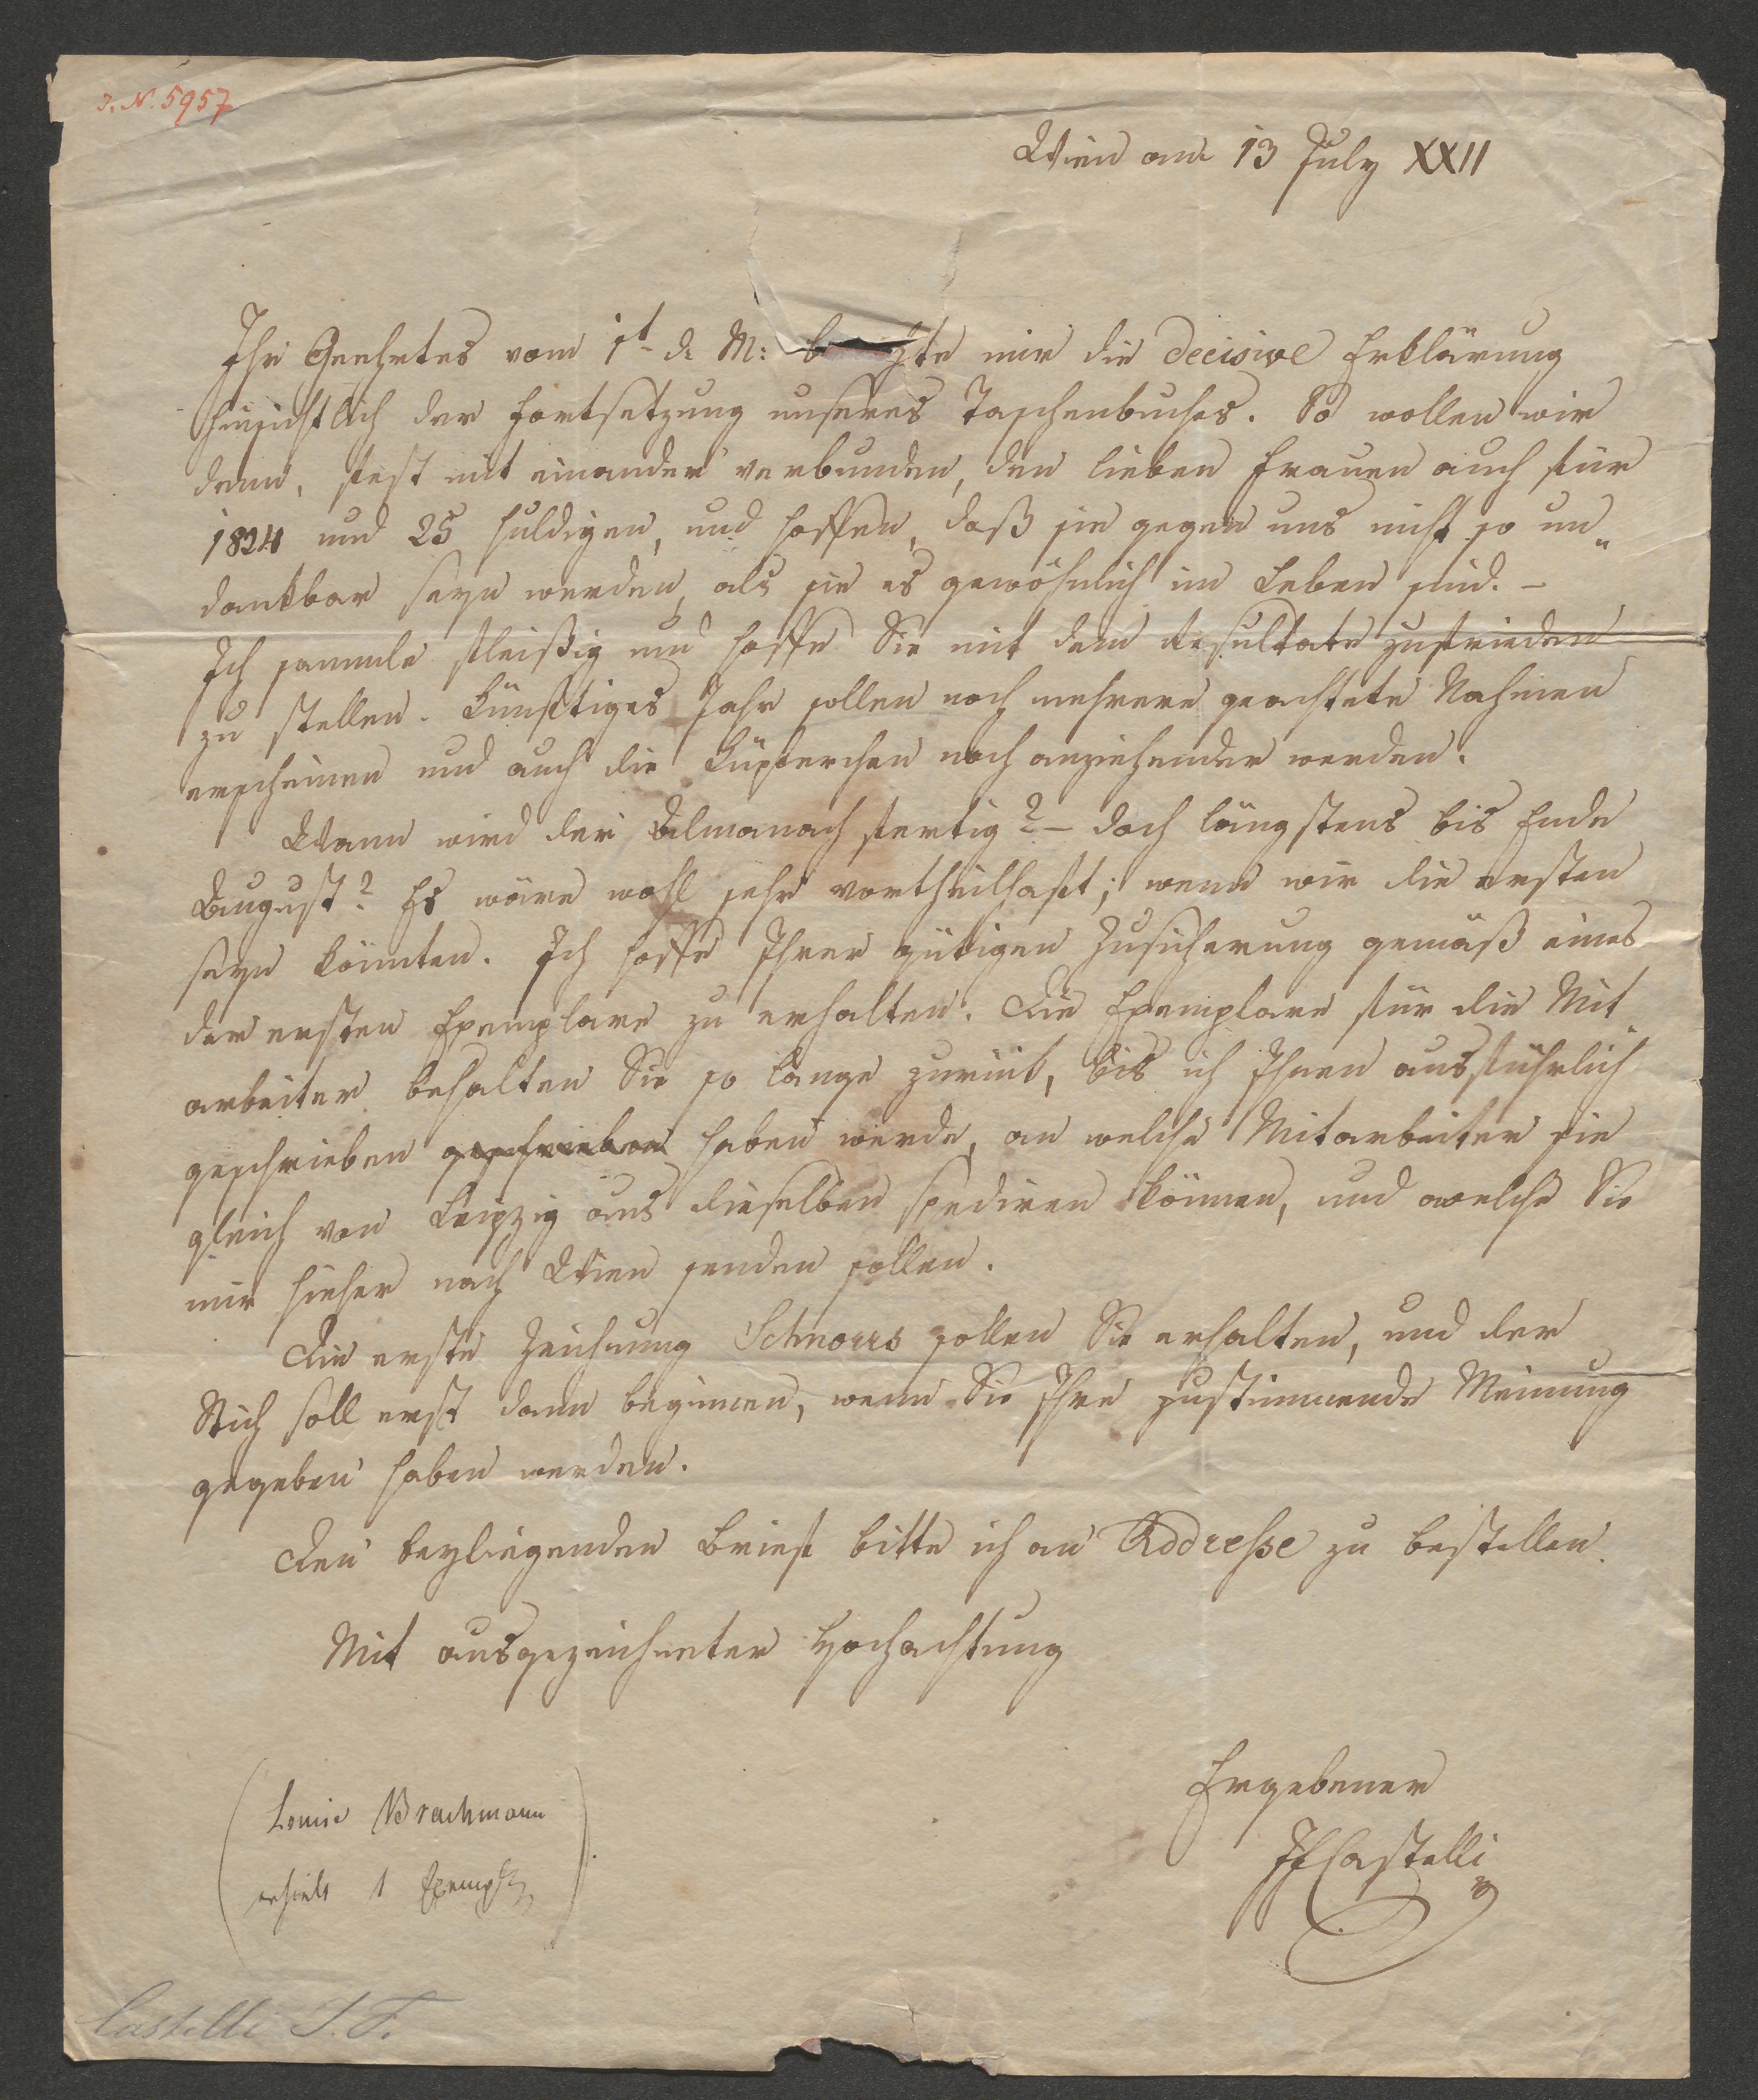 J. N. 5957
Wien am 13 July XXII
Ihr Geehrtes vom 1t d. M: b hte mir die decisive Erklärung
hinsichtlich der Fortsetzung unseres Taschenbuches. So wollen wir
denn, fest mit einander verbunden, den lieben Frauen auch für
1824 und 25 huldigen, und hoffen, daß sie gegen uns nicht so un„
dankbar seyn werden, als sie es gewöhnlich im Leben sind. –
Ich sammle fleißig und hoffe Sie mit dem Resultate zufrieden
zu stellen. Künftiges Jahr sollen noch mehrere geachtete Nahmen
erscheinen und auch die Kupferchen noch anziehender werden.
Wann wird der Almanach fertig? – doch längstens bis Ende
August? Es wäre wohl sehr vortheilhaft; wenn wir die ersten
seyn könnten. Ich hoffe Ihrer gütigen Zusicherung gemäß eines
der ersten Exemplare zu erhalten. Die Exemplare für die Mit„
arbeiter behalten Sie so lange zurück, bis ich Ihnen ausführlich
geschrieben geschrieben haben werde, an welche Mitarbeiter sie
gleich von Leipzig aus dieselben spediren können, und welche Sie
mir hieher nach Wien senden sollen.
Die erste Zeichnung Schnorrs sollen Sie erhalten, und der
Stich soll erst dann beginnen, wenn Sie Ihre zustimmende Meinung
gegeben haben werden.
Den beyliegenden Brief bitte ich an Addresse zu bestellen.
Mit ausgezeichneter Hochachtung
Ergebener
IFCastelli
(Louise Brachmann
erhielt 1 Exempl)
Castelli I. F.